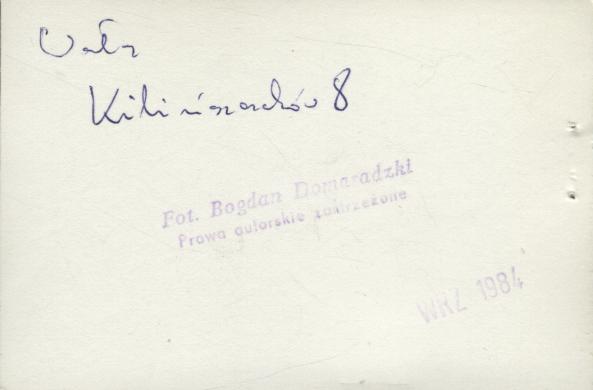 Kilińszczaków 8
Fot. Bogdan Domaradzki
Prawa autorskie zastrzeżone
WRZ 1984